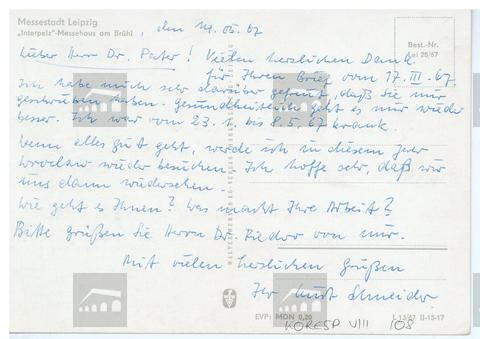 Messestadt Leipzig
„Interpelz"-Messehaus am Brühl
den 14.05.67
Best.-Nr.
Lieber Herr Dr. Pater! Vielen herzlichen Dank
für Ihren Brief vom 17. III. 67.
Ich habe mich sehr darüber gefreut, daß Sie mir
geschrieben haben. Gesundheitlich geht es mir wieder
besser. Ich war vom 23.1. bis 8.5.67 krank.
Wenn alles gut geht, werde ich in diesem Jahr
Wroclaw wieder besuchen. Ich hoffe sehr, daß wir
uns dann wiedersehen.
Wie geht es Ihnen? Was macht Ihre Arbeit?
Bitte grüßen Sie Herrn Dr. von mir.
Mit vielen herzlichen Grüßen
Ihr Kurt Schneider
EVP: MDN 0,20
II-15-17
KORESP VIII 108